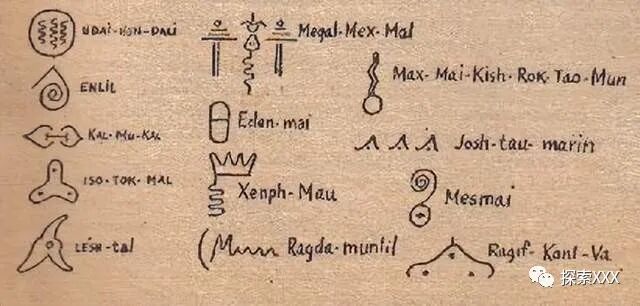 UDAI-HON-DALI
ENLIL
KAL-MU-KAL
ISO-TOK-MAL
LESH-tal
Megal-Mex-Mal
Eden-mai
Xenph-Mau
Ragda-muntil
Max-Mai-Kish-Rok-Tao-Mun
Josh-tau-marin
Mesmai
Ragif-Kant-Va
探索XXX